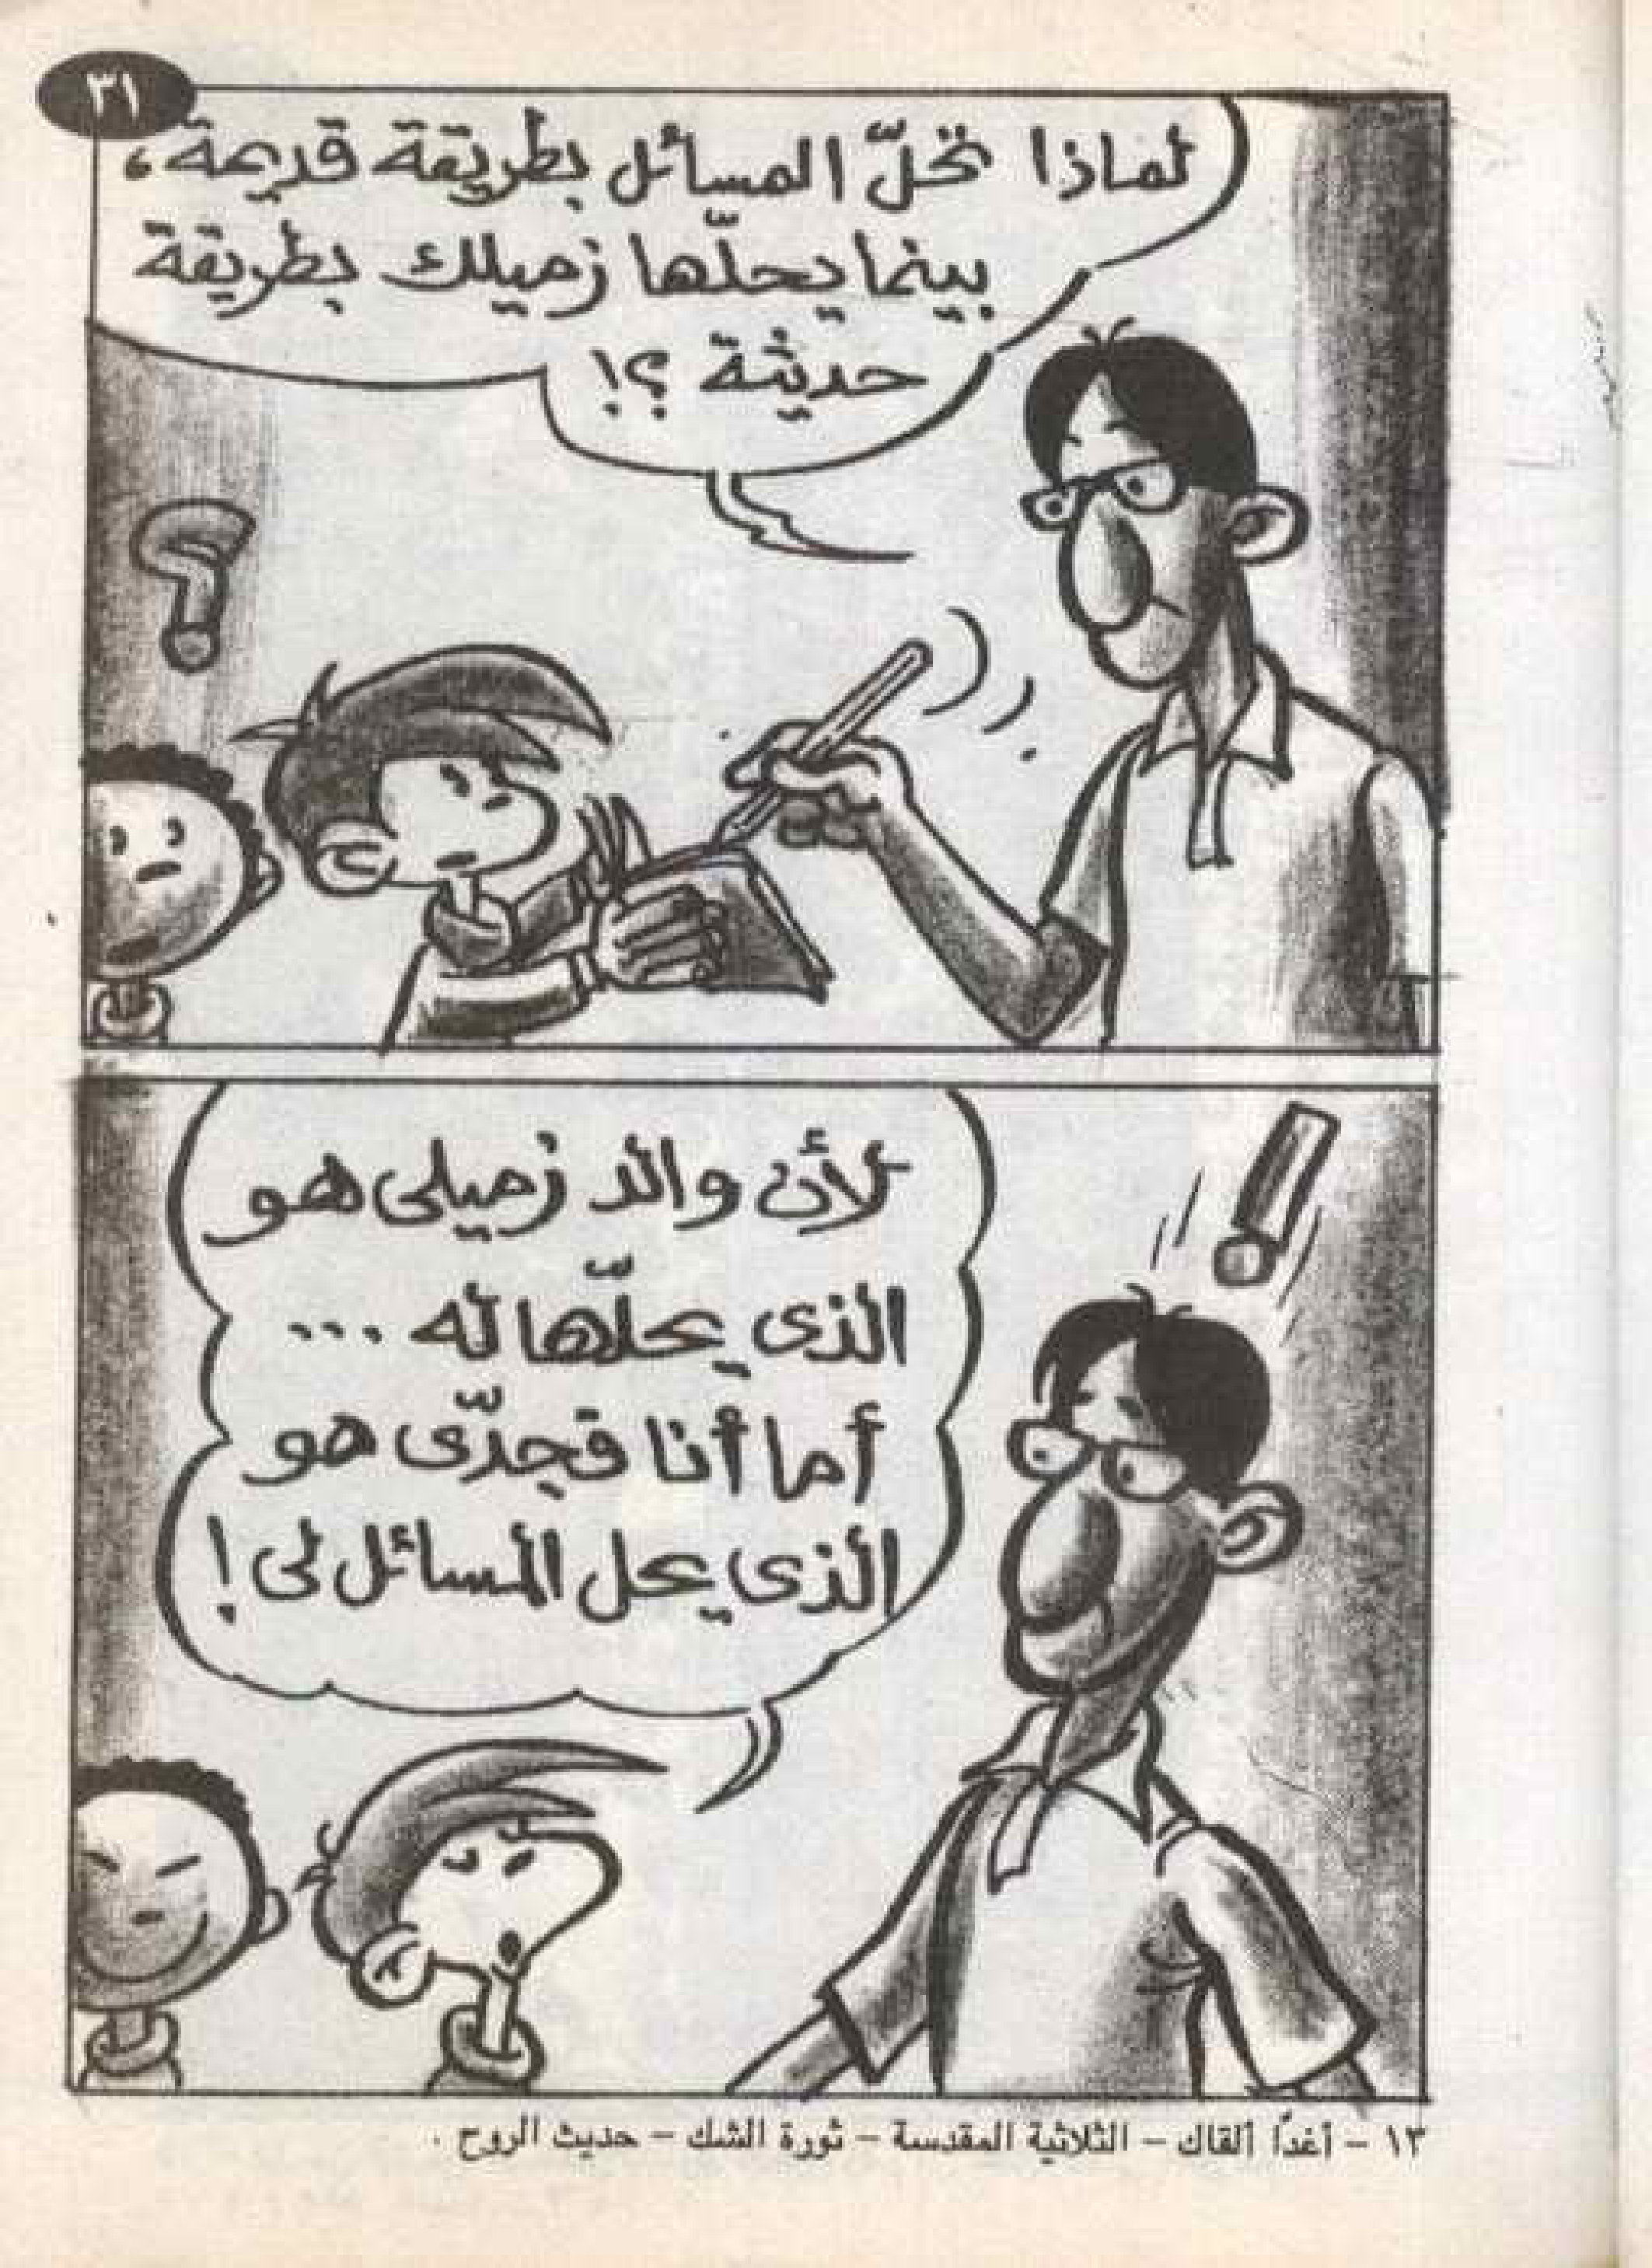 ٣١
لماذا تحلّ المسائل بطريقة قديمة،
بينما يحلّها زميلك بطريقة
حديثة ؟!
لأن والد زميلى هو
الذى يحلّها له ...
أما أنا فجدّى هو
الذى يحل المسائل لى !
١٣ - أغدًا ألقاك - الثلاثية المقدسة - ثورة الشك - حديث الروح .